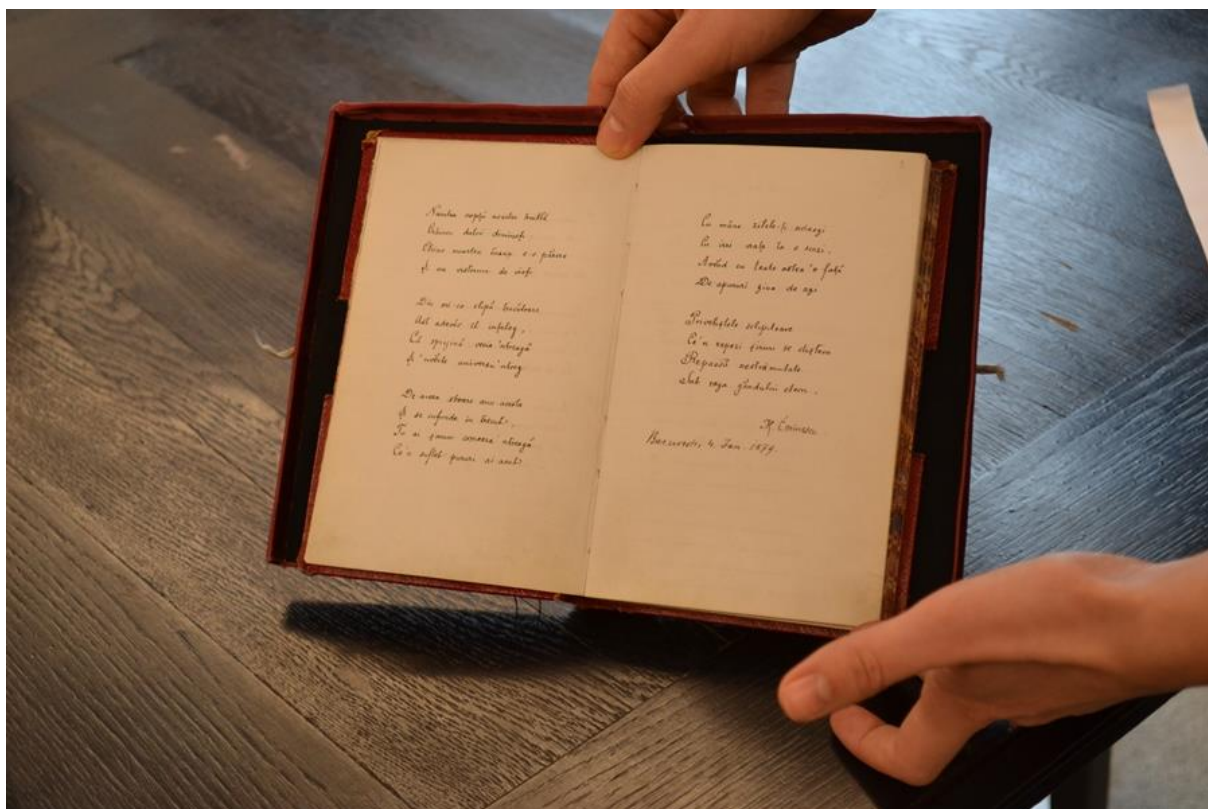 Naintea nopții noastre umblă
Crăiasa dulcei dimineți.
Chiar moartea însași e-o părere
Și un vistiernic de vieți.
Din ori-ce clipă trecătoare
Ast adevăr îl înțeleg,
Că sprijină vecia 'ntreagă
Și 'nvârte universu 'ntreg
De-aceea sboare anu-acesta
Și se cufunde în trecut,
Tu ai ș'acum comoara 'ntreagă
Ce'n suflet pururi ai avut
Cu mâne zilele-ți adaogi
Cu ieri viața ta o scazi,
Având cu toate astea 'n față
De apururi ziua de azi
Priveliștele sclipitoare
Ce'n repezi șiruri se diștern
Repaosă nestrămutate
Sub raza gândului etern.
M. Eminescu
Bucuresti, 4. Ian. 1879.